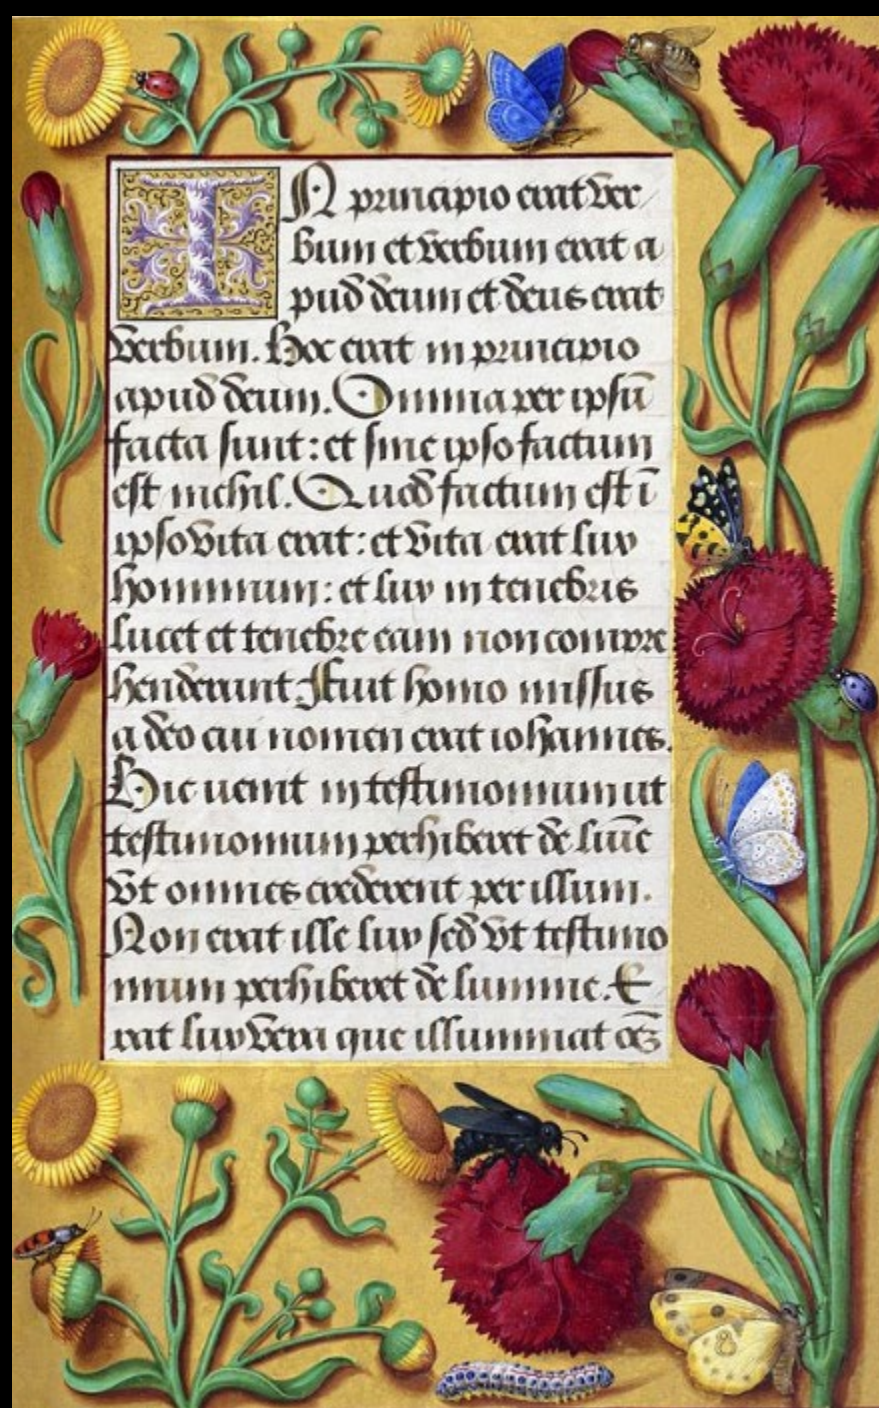 IN principio erat ver
bum et verbum erat a
pud deum et deus erat
verbum. Hoc erat in principio
apud deum. Omnia per ipsū
facta sunt: et sine ipso factum
est nichil. Quod factum est ī
ipso vita erat: et vita erat lux
hominum: et lux in tenebris
lucet et tenebre eam non compre
henderunt Fuit homo missus
a deo cui nomen erat iohannes.
Hic uenit in testimonium ut
testimonium perhiberet de lumīe
vt omnes crederent per illum.
Non erat ille lux sed vt testimo
nium perhiberet de lumine. E
rat lux vera que illuminat oēʒ